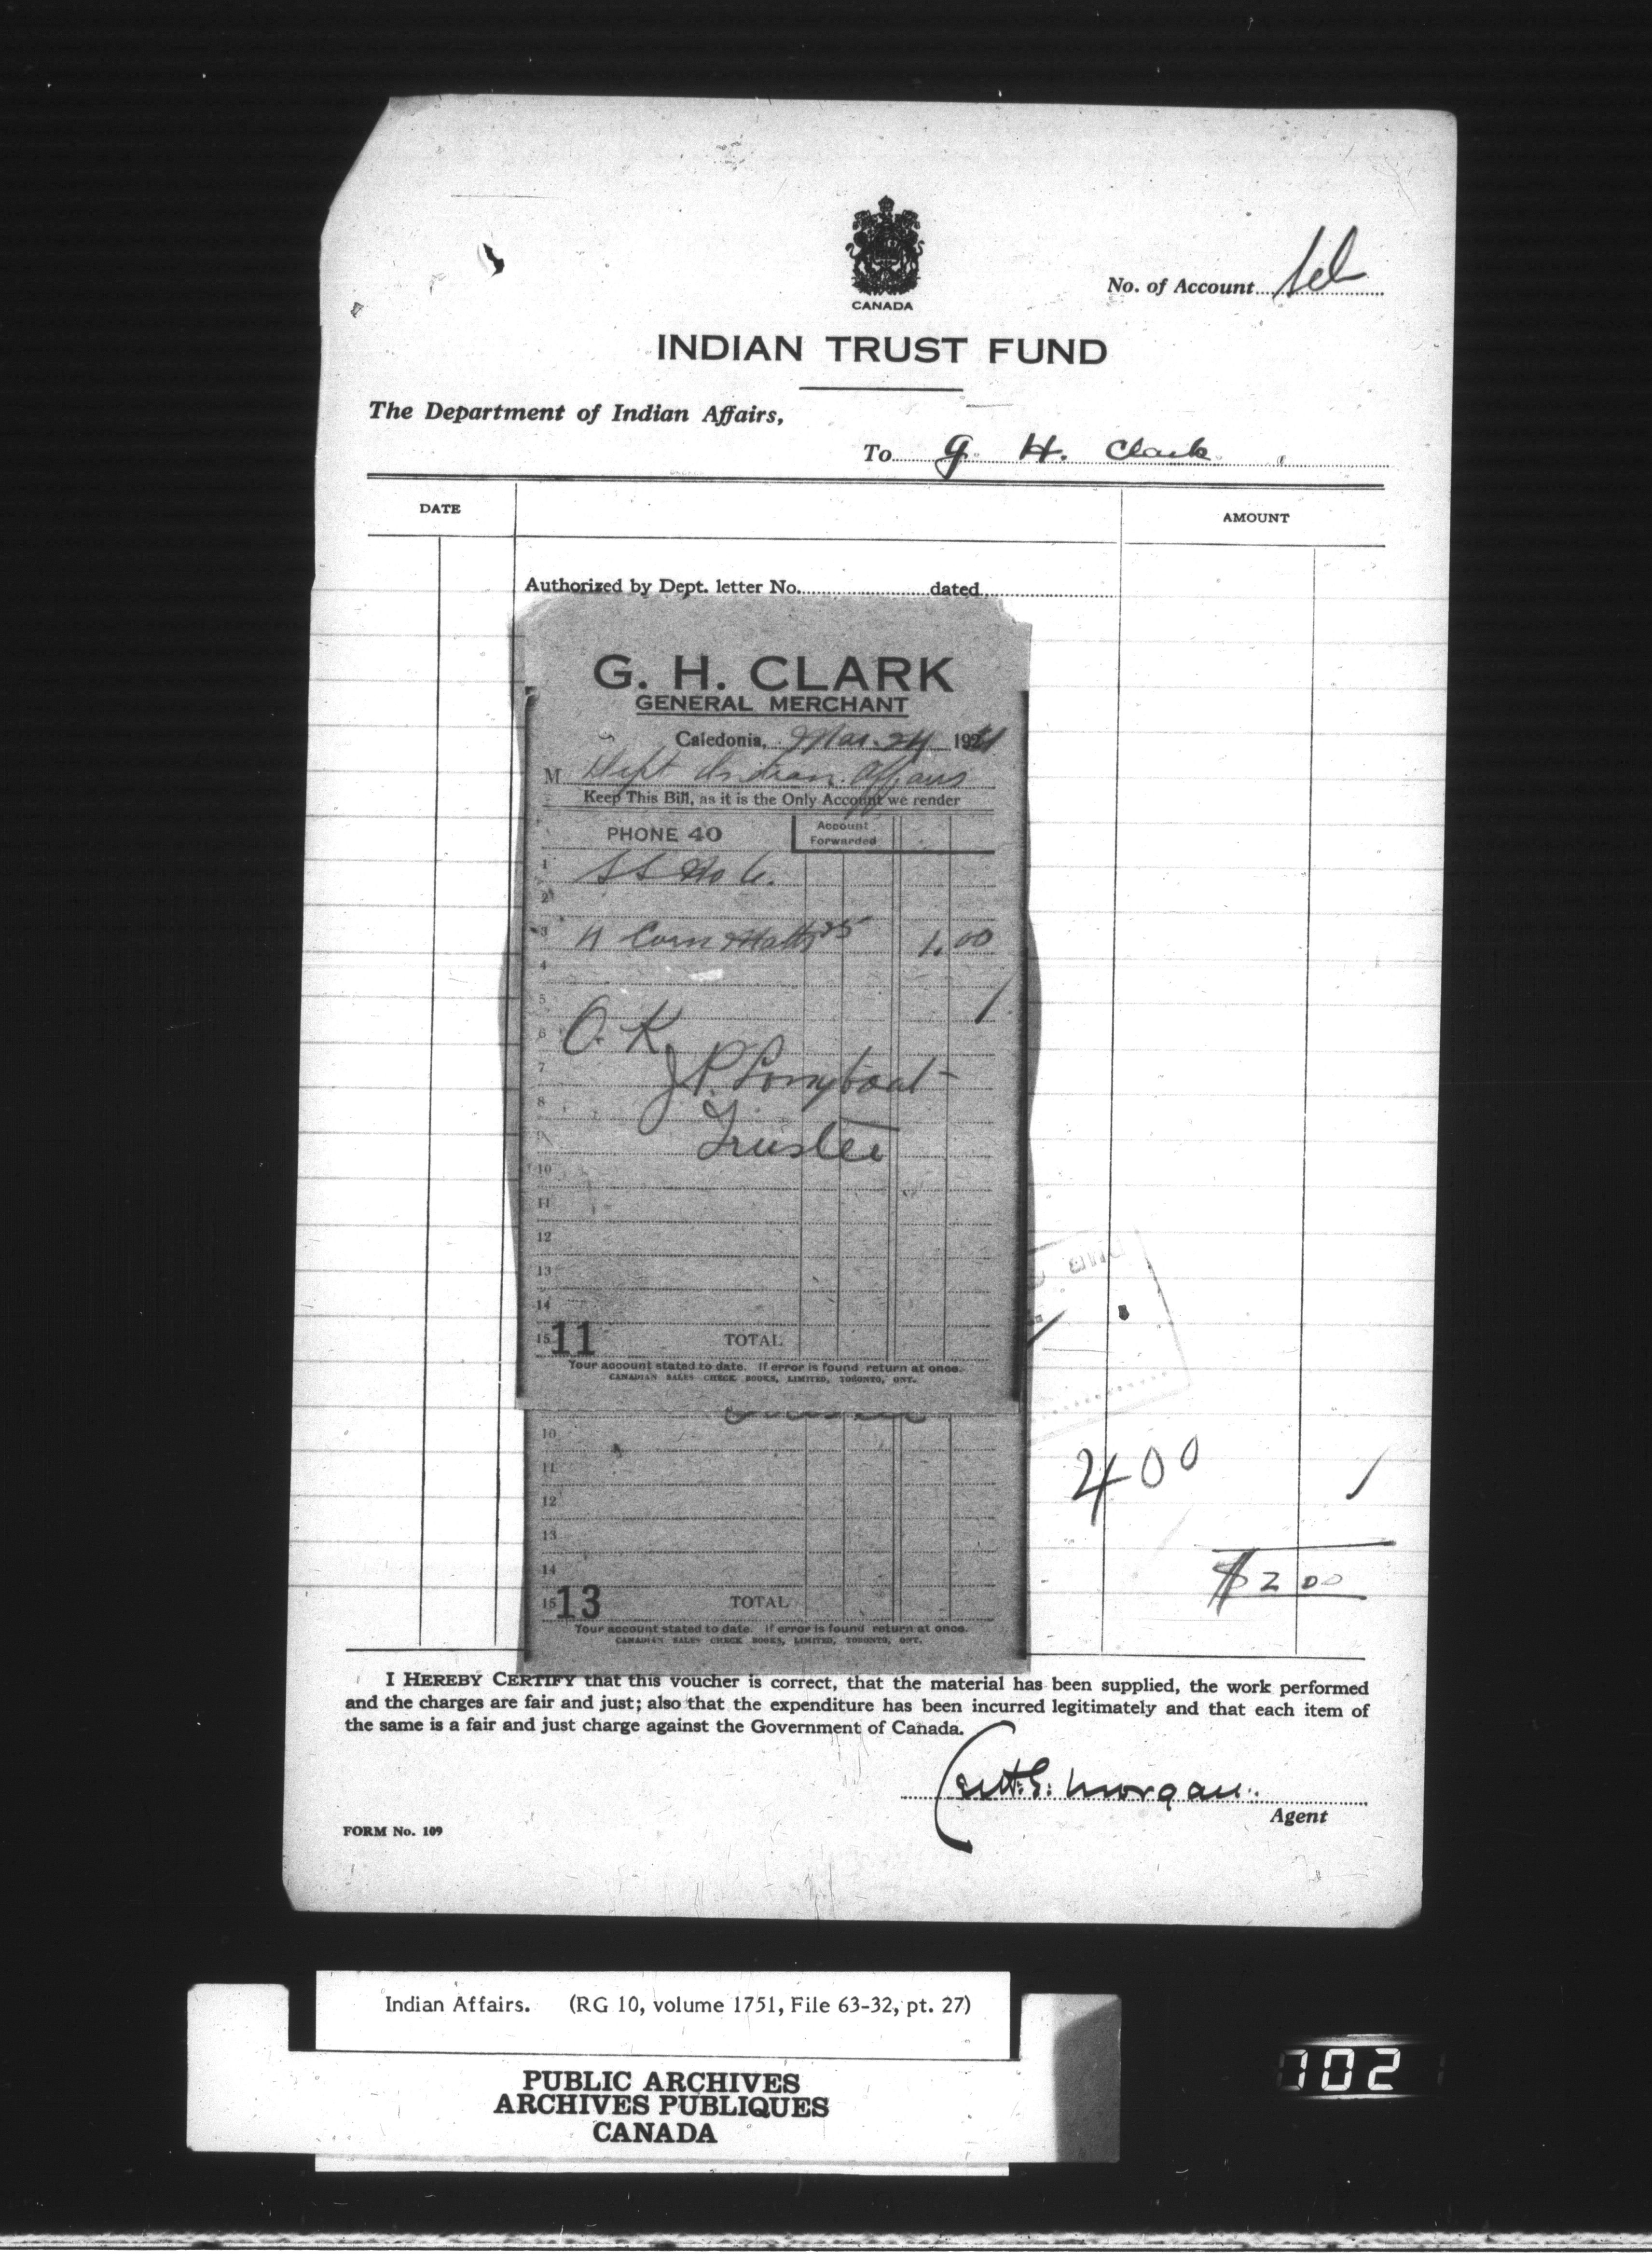 CANADA
No. of Account
INDIAN TRUST FUND
The Department of Indian Affairs,
To G. H. Clark
DATE
AMOUNT
Authorized by Dept. letter No. dated
G. H. CLARK
GENERAL MERCHANT
Caledonia, Mar. 24 192
M Dept Indian Affairs
Keep This Bill, as it is the Only Account we render
PHONE 40
Account
Forwarded
1 S S No 6.
2
3 4 Corn 25 1.00
4
5
6 O. K
7 J P. Longboat
8
9 Trustee
10
11
12
13
14
15 11 TOTAL
Your account stated to date. If error is found return at once.
CANADIAN SALES CHECK BOOKS, LIMITED, TORONTO, ONT.
10
11
12
13
14
15 13 TOTAL
Your account stated to date. If error is found return at once.
CANADIAN SALES CHECK BOOKS, LIMITED, TORONTO, ONT.
400
$2 00
I HEREBY CERTIFY that this voucher is correct, that the material has been supplied, the work performed
and the charges are fair and just; also that the expenditure has been incurred legitimately and that each item of
the same is a fair and just charge against the Government of Canada.
Morgan.
Agent
FORM No. 109
Indian Affairs. (RG 10, volume 1751, File 63-32, pt. 27)
PUBLIC ARCHIVES
ARCHIVES PUBLIQUES
CANADA
702